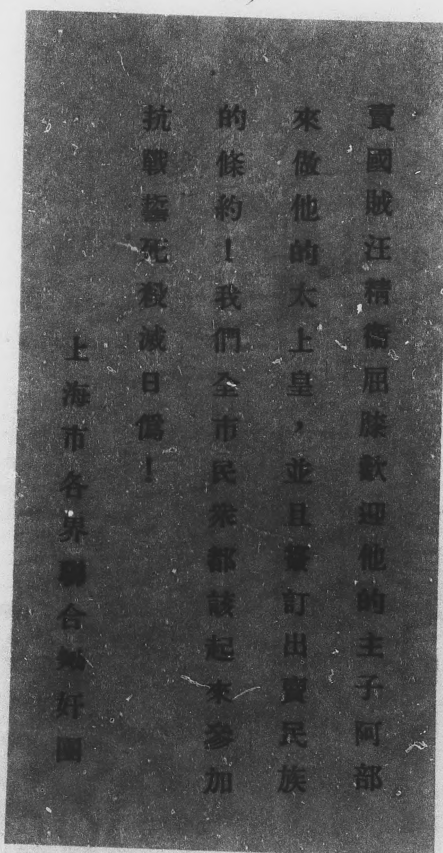 賣國賊汪精衞屈膝歡迎他的主子阿部
來做他的太上皇，並且簽訂出賣民族
的條約！我們全市民衆都該起來參加
抗戰誓死殺滅日僞！
上海市各界聯合鋤奸團